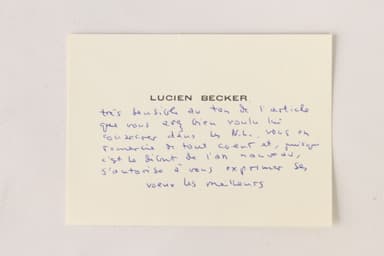 LUCIEN BECKER
très sensible au ton de l'article
que vous avez bien voulu lui
consacrer dans les N.L. vous en
remercie de tout coeur et, puisque
c'est le début de l'an nouveau,
s'autorise à vous exprimer ses
voeux les meilleurs